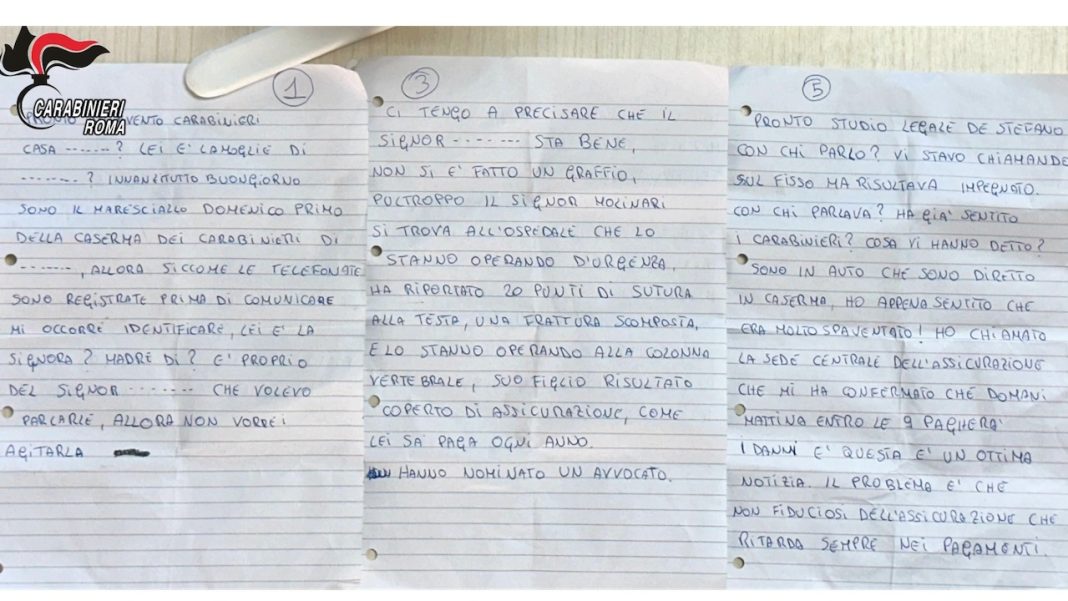 CARABINIERI
ROMA
1
PRONTO VENTO CARABINIERI
CASA -------? LEI E' LA MOGLIE DI
--------? INNANZITUTTO BUONGIORNO
SONO IL MARESCIALLO DOMENICO PRIMO
DELLA CASERMA DEI CARABINIERI DI
-------, ALLORA SICCOME LE TELEFONATE
SONO REGISTRATE PRIMA DI COMUNICARE
MI OCCORRE IDENTIFICARE, LEI E' LA
SIGNORA? MADRE DI? E' PROPRIO
DEL SIGNOR ------- CHE VOLEVO
PARLARLE, ALLORA NON VORREI
AGITARLA
3
CI TENGO A PRECISARE CHE IL
SIGNOR -------- STA BENE,
NON SI E' FATTO UN GRAFFIO,
POLTROPPO IL SIGNOR MOLINARI
SI TROVA ALL'OSPEDALE CHE LO
STANNO OPERANDO D'URGENZA,
HA RIPORTATO 20 PUNTI DI SUTURA
ALLA TESTA, UNA FRATTURA SCOMPOSTA,
E LO STANNO OPERANDO ALLA COLONNA
VERTEBRALE, SUO FIGLIO RISULTATO
COPERTO DI ASSICURAZIONE, COME
LEI SA PAGA OGNI ANNO.
HANNO NOMINATO UN AVVOCATO.
5
PRONTO STUDIO LEGALE DE STEFANO
CON CHI PARLO? VI STAVO CHIAMANDO
SUL FISSO MA RISULTAVA IMPEGNATO.
CON CHI PARLAVA? HA GIA' SENTITO
I CARABINIERI? COSA VI HANNO DETTO?
SONO IN AUTO CHE SONO DIRETTO
IN CASERMA, HO APPENA SENTITO CHE
ERA MOLTO SPAVENTATO! HO CHIAMATO
LA SEDE CENTRALE DELL'ASSICURAZIONE
CHE MI HA CONFERMATO CHE DOMANI
MATTINA ENTRO LE 9 PAGHERA'
I DANNI E' QUESTA E' UN OTTIMA
NOTIZIA. IL PROBLEMA E' CHE
NON FIDUCIOSI DELL'ASSICURAZIONE CHE
RITARDA SEMPRE NEI PAGAMENTI.